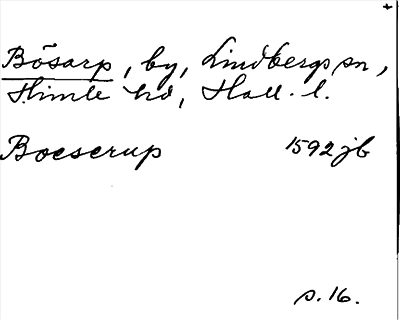 Bösarp, by, Lindbergs sn,
Himle hd, Hall. l.
Boeserup 1592 jb
s. 16.